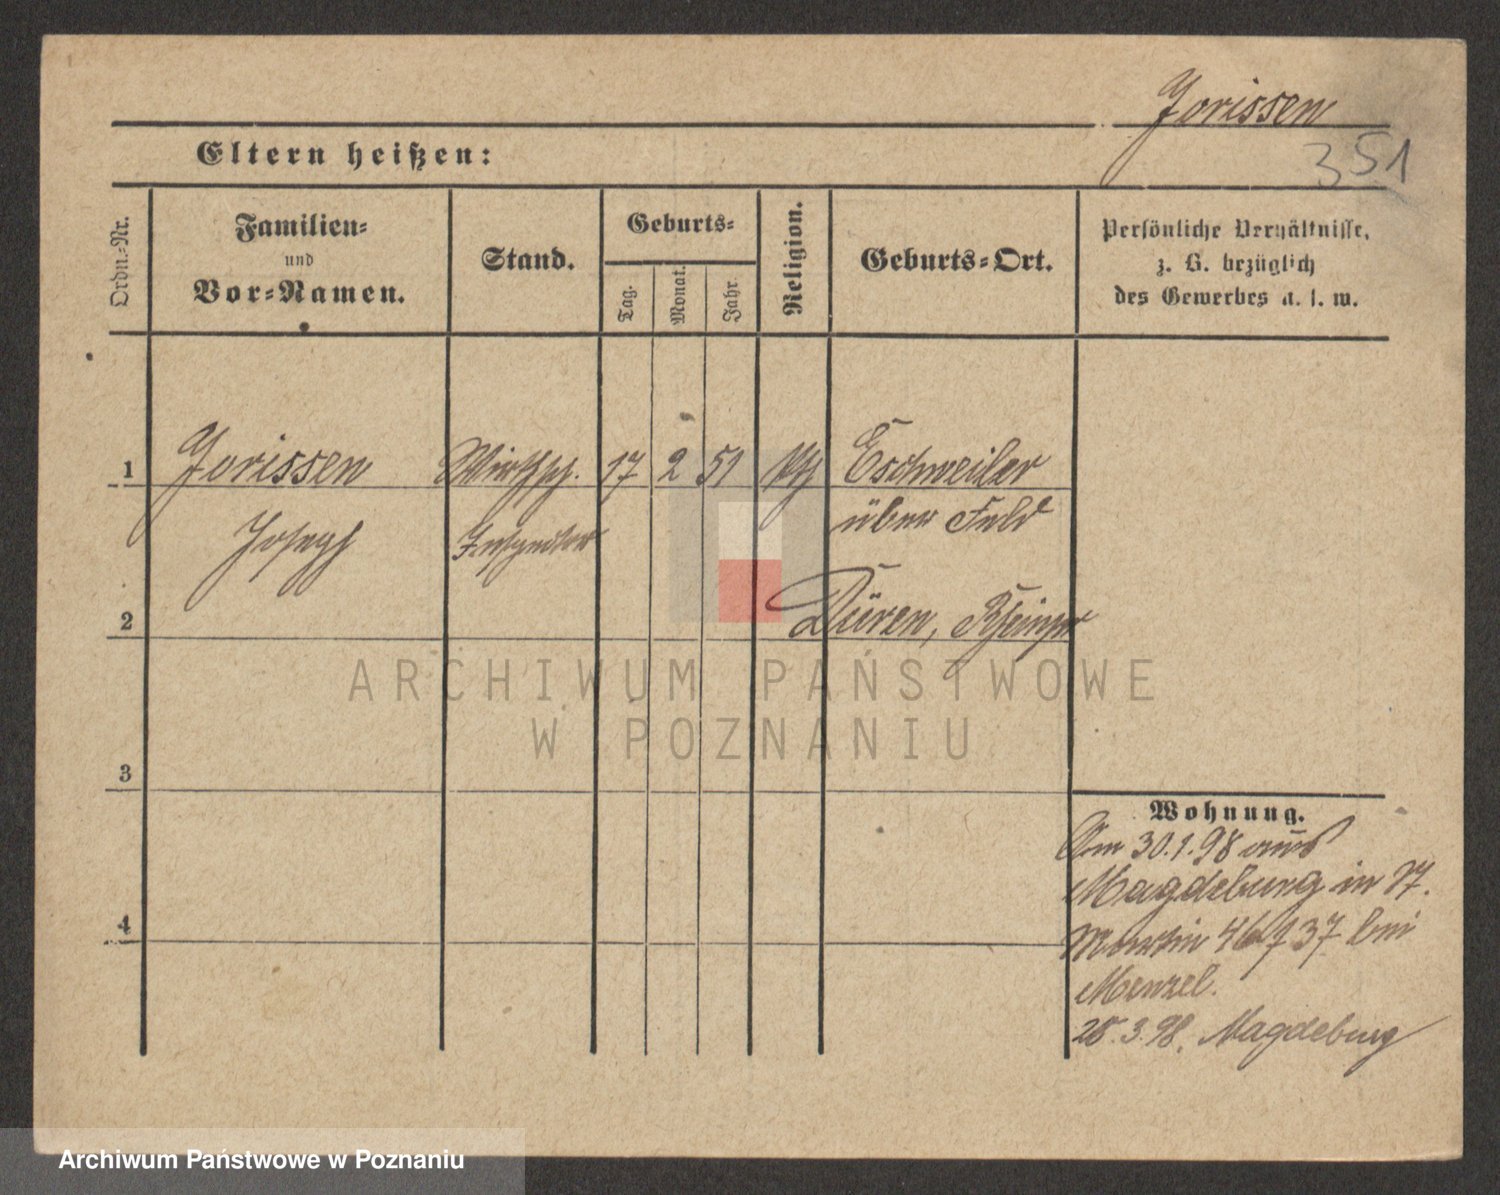 Jorissen
351
Eltern heißen:
Ordn.-Nr.
Familien-
und
Vor-Namen.
Stand.
Geburts-
Tag.
Monat.
Jahr.
Religion.
Geburts-Ort.
Persönliche Verhältnisse,
z. B. bezüglich
des Gewerbes u. s. w.
1 Jorissen Wirthsch. 17 2 51 Eschweiler
Joseph Inspector über Feld
2 Düren, Rheinpr
3
4
Wohnung.
Am 30.1.98 aus
Magdeburg in
Martin 46/ 37 bei
Menzel.
28.3.98. Magdeburg
ARCHIWUM PAŃSTWOWE
W POZNANIU
Archiwum Państwowe w Poznaniu